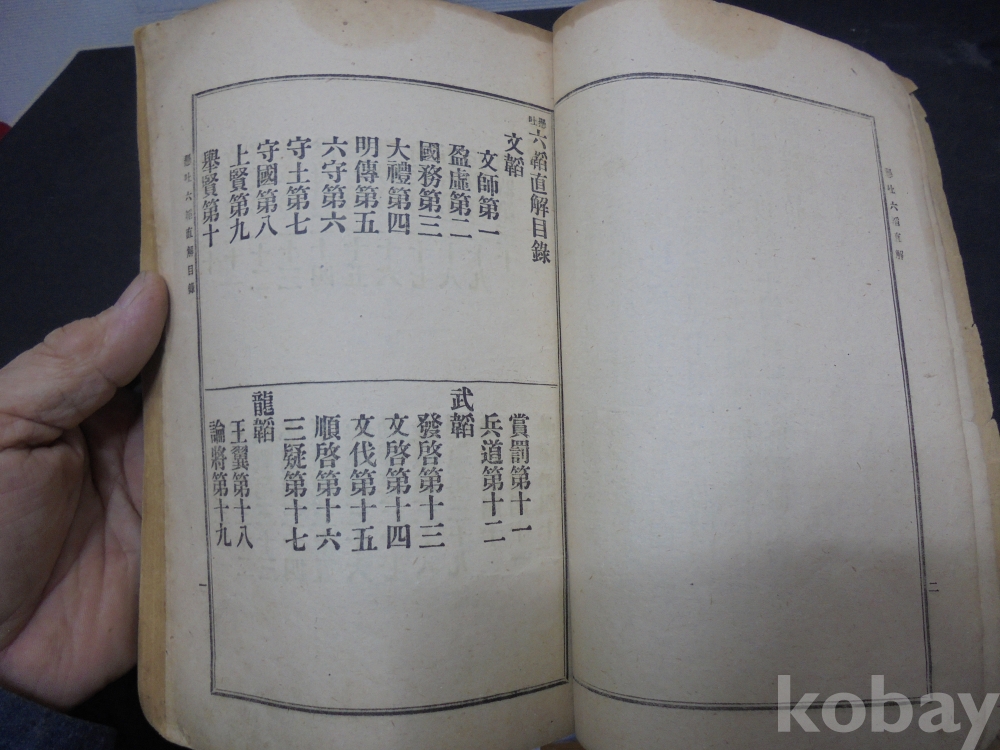 懸吐六韜直解目錄
文韜
文師第一
盈虛第二
國務第三
大禮第四
明傳第五
六守第六
守土第七
守國第八
上賢第九
舉賢第十
賞罰第十一
兵道第十二
武韜
發啓第十三
文啓第十四
文伐第十五
順啓第十六
三疑第十七
龍韜
王翼第十八
論將第十九
懸吐六韜直解目錄
一
懸吐六韜直解
二
kobay